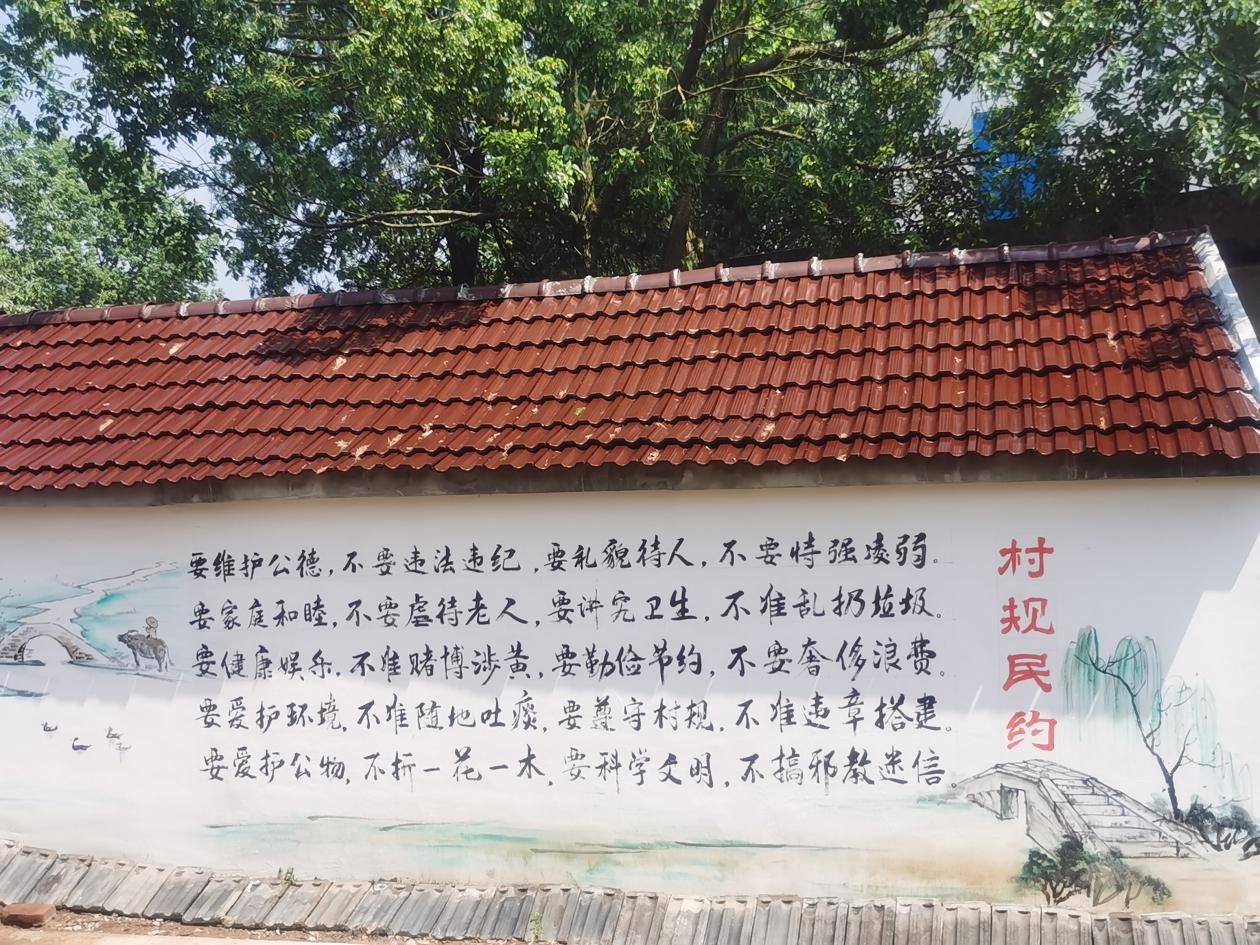 村规民约
要维护公德,不要违法违纪,要礼貌待人,不要恃强凌弱。
要家庭和睦,不要虐待老人,要讲究卫生,不准乱扔垃圾。
要健康娱乐,不准赌博涉黄,要勤俭节约,不要奢侈浪费。
要爱护环境,不准随地吐痰,要遵守村规,不准违章搭建。
要爱护公物,不折一花一木,要科学文明,不搞邪教迷信。